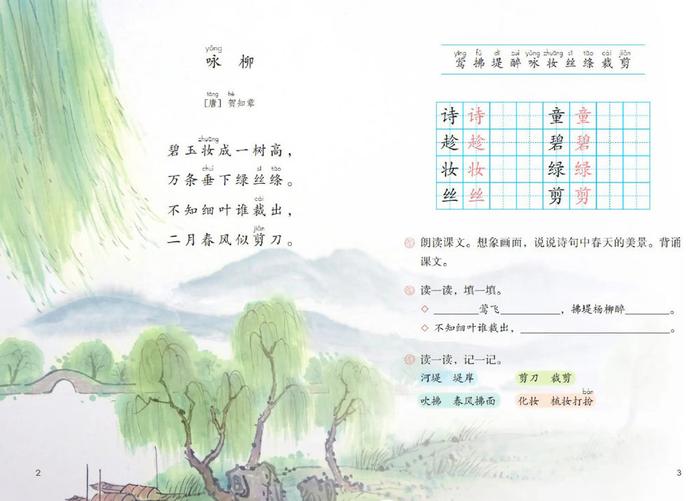 yǒng
咏 柳
táng hè
[唐] 贺知章
zhuāng
碧玉妆成一树高，
chuí sī tāo
万条垂下绿丝绦。
cái
不知细叶谁裁出，
jiǎn
二月春风似剪刀。
2
yīng fú dī zuì yǒng zhuāng sī tāo cái jiǎn
莺 拂 堤 醉 咏 妆 丝 绦 裁 剪
诗 诗 童 童
趁 趁 碧 碧
妆 妆 绿 绿
丝 丝 剪 剪
朗读课文。想象画面，说说诗句中春天的美景。背诵
课文。
读一读，填一填。
◇ ________莺飞____________，拂堤杨柳醉________。
◇ 不知细叶谁裁出，______________________________。
读一读，记一记。
河堤 堤岸 剪刀 裁剪
bàn
吹拂 春风拂面 化妆 梳妆打扮
3